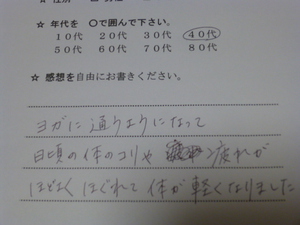 ☆ 年代を 〇で囲んで下さい。
10代 20代 30代 40代
50代 60代 70代 80代
☆ 感想を自由にお書きください。
ヨガに通うようになって
日頃の体のコリや 疲れが
ほどよくほぐれて体が軽くなりました